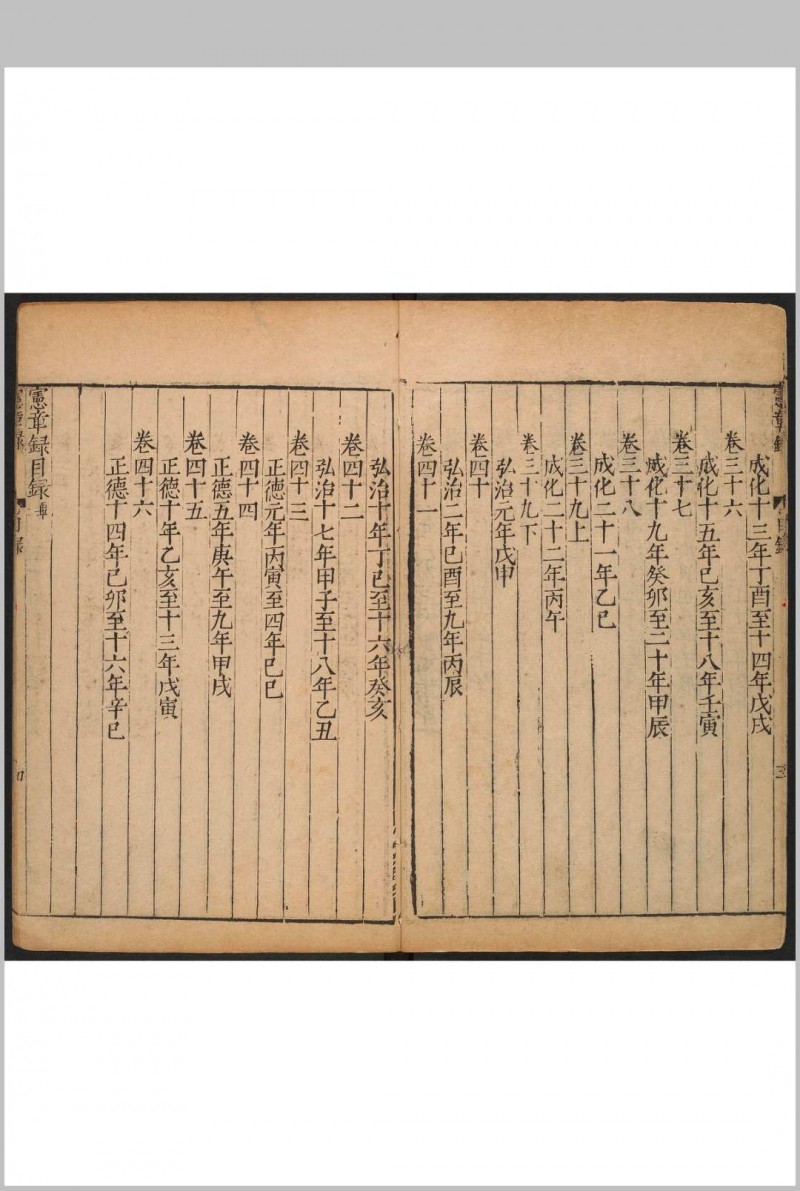 憲章録
目録
三
成化十三年丁酉至十四年戊戌
卷三十六
成化十五年己亥至十八年壬寅
卷三十七
成化十九年癸卯至二十年甲辰
卷三十八
成化二十一年乙巳
卷三十九上
成化二十二年丙午
卷三十九下
弘治元年戊申
卷四十
弘治二年己酉至九年丙辰
卷四十一
弘治十年丁巳至十六年癸亥
卷四十二
弘治十七年甲子至十八年乙丑
卷四十三
正德元年丙寅至四年己巳
卷四十四
正德五年庚午至九年甲戌
卷四十五
正德十年乙亥至十三年戊寅
卷四十六
正德十四年己卯至十六年辛巳
憲章録目録畢
憲章録
目録